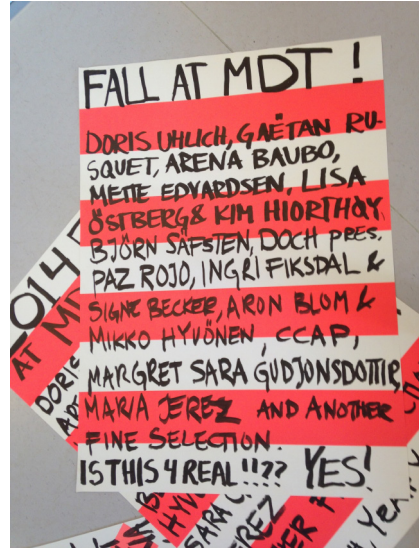 FALL AT MDT !
DORIS UHLICH, GAËTAN RU-
SQUET, ARENA BAUBO,
METTE EDVARDSEN, LISA
ÖSTBERG & KIM HIORTHØY
BJÖRN SÄFSTEN, DOCH PRES.
PAZ ROJO, INGRI FIKSDAL &
SIGNE BECKER, ARON BLOM &
MIKKO HYVÖNEN, CCAP,
MARGRET SARA GUDJONSDOTTIR,
MARIA JEREZ AND ANOTHER
FINE SELECTION.
IS THIS 4 REAL !!?? YES!
2014
AT MD
DORIS